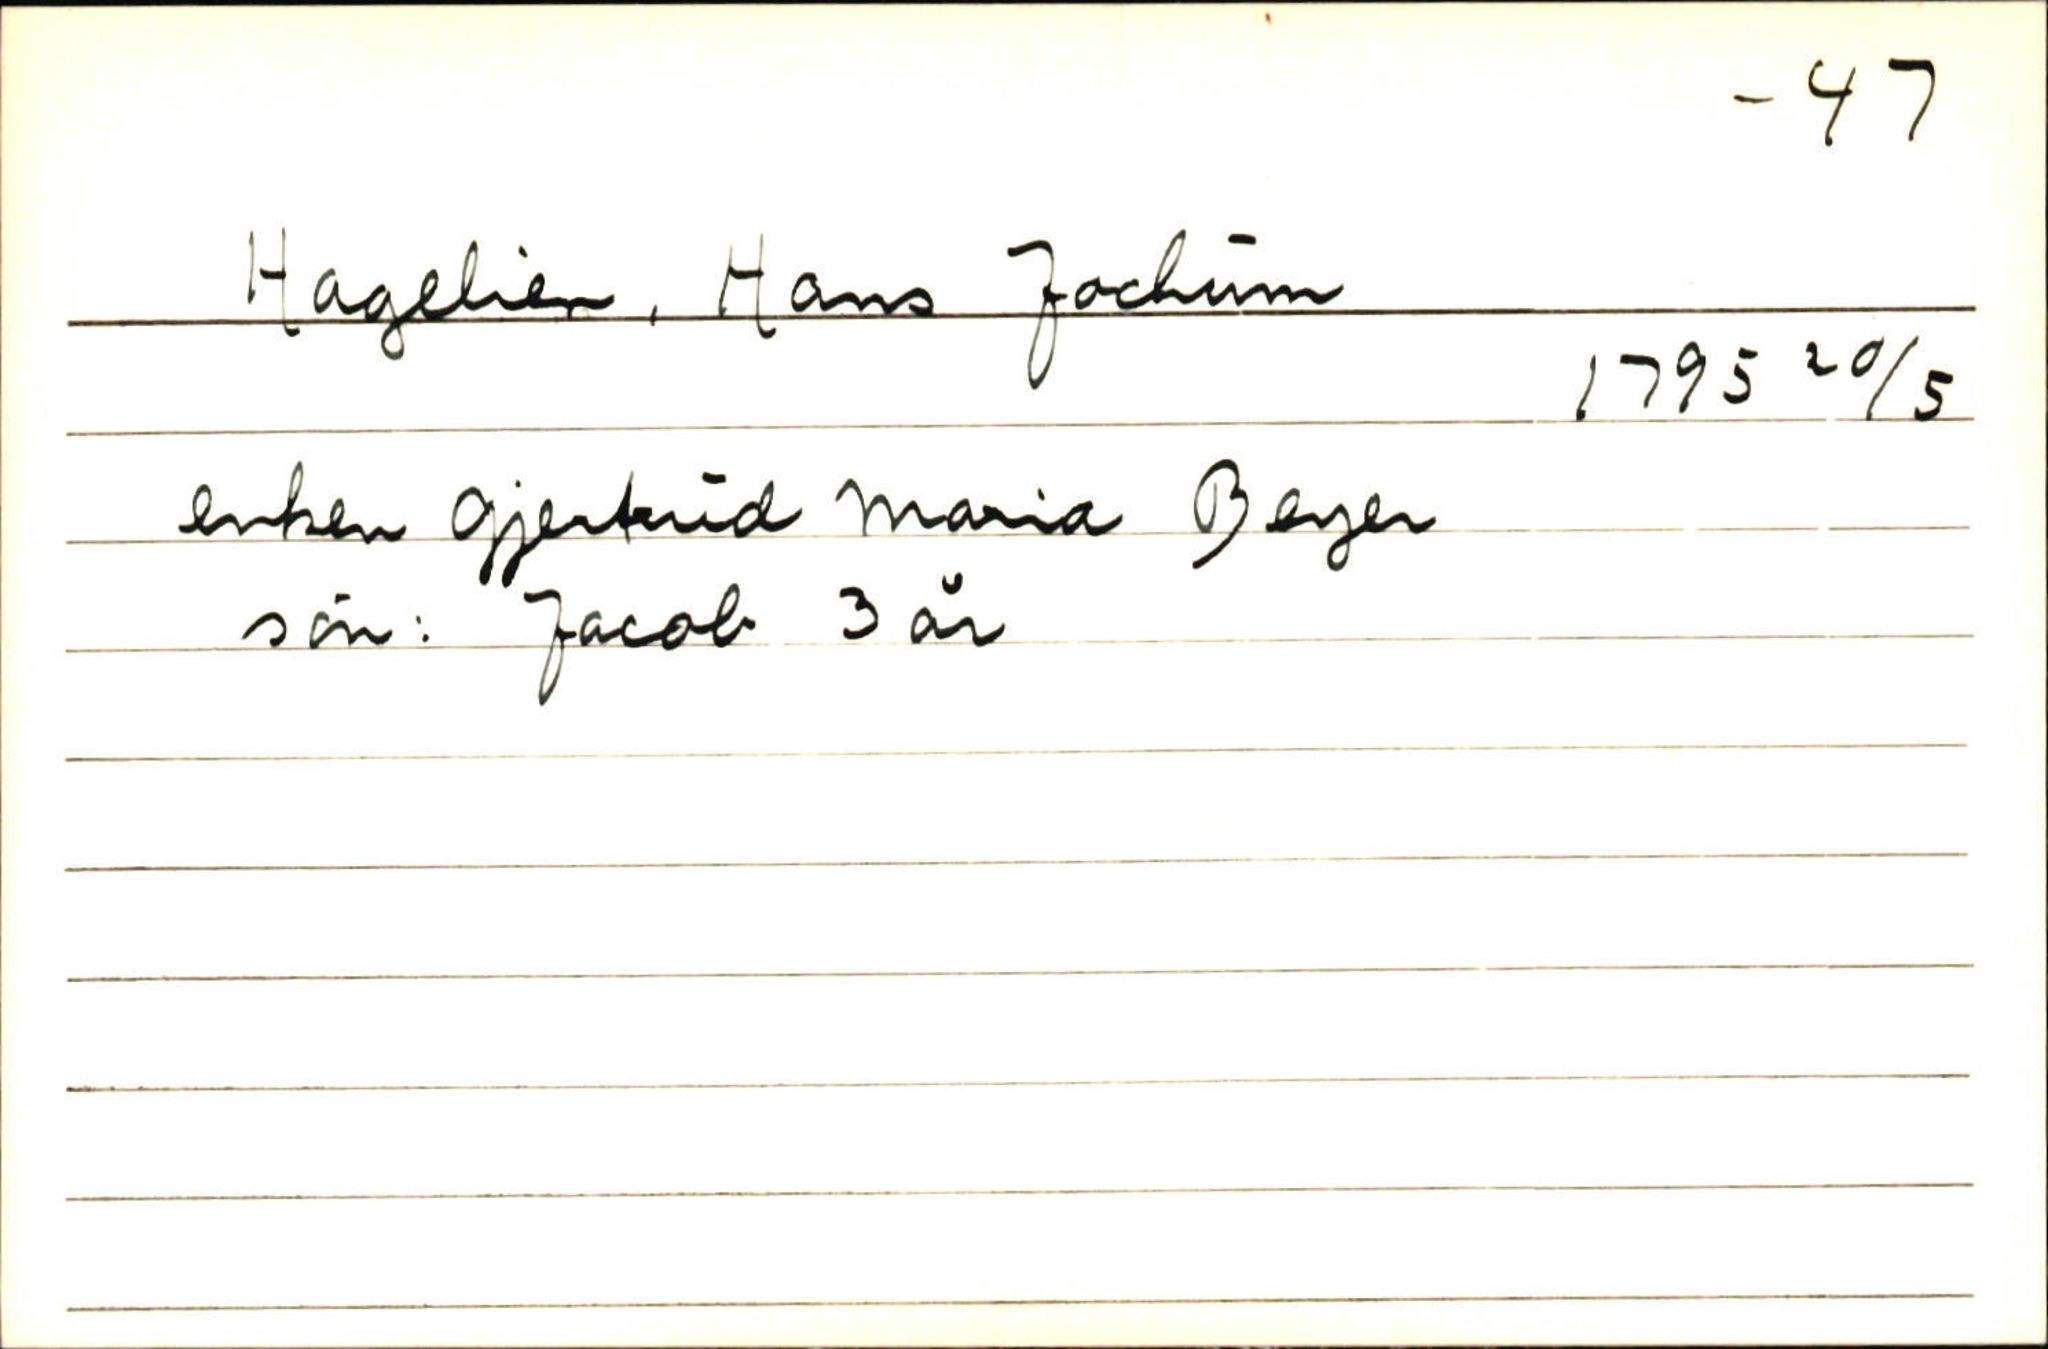 -47
Hagelien, Hans Jochum
1795 20/5
enken Gjertrud Maria Beyer
søn: Jacob 3 år